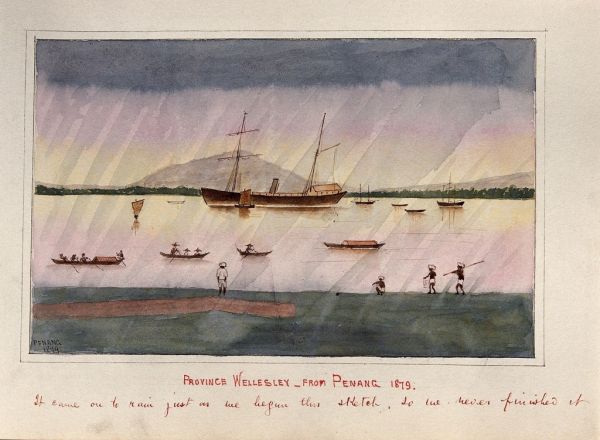 PENANG
1879
PROVINCE WELLESLEY _ FROM PENANG 1879.
It came on to rain just as we began this sketch, so we never finished it